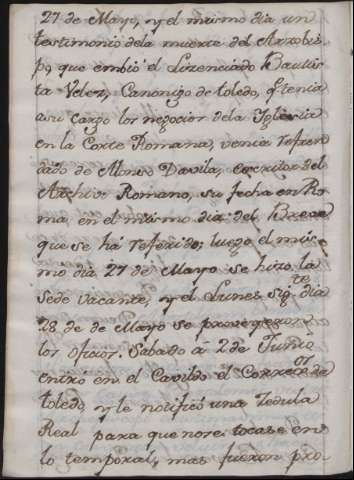 27 de Mayo, y el mismo dia un
testimonio dela muerte del Arzobis-
po, que embió el Lizenciado Bautis
ta Velez, Canonigo de toledo, q.e tenia
a su cargo los negocios dela Iglesia
en la Corte Romana, venia refren
dado de Alonso Davila, escritor del
Archivo Romano, su fecha en Ro
ma, en el mismo dia del Breve
que se ha referido; luego el mis-
mo dia 27 de Mayo se hizo la
Sede vacante, y el Lunes sig.te dia
28 de de Mayo se proveyeron
los oficios. Sabado á 2 de Junio
entró en el Cavildo el Correg.or de
toledo, y le notificó una Zedula
Real para que no se tocase en
lo temporal, mas fueron pro-